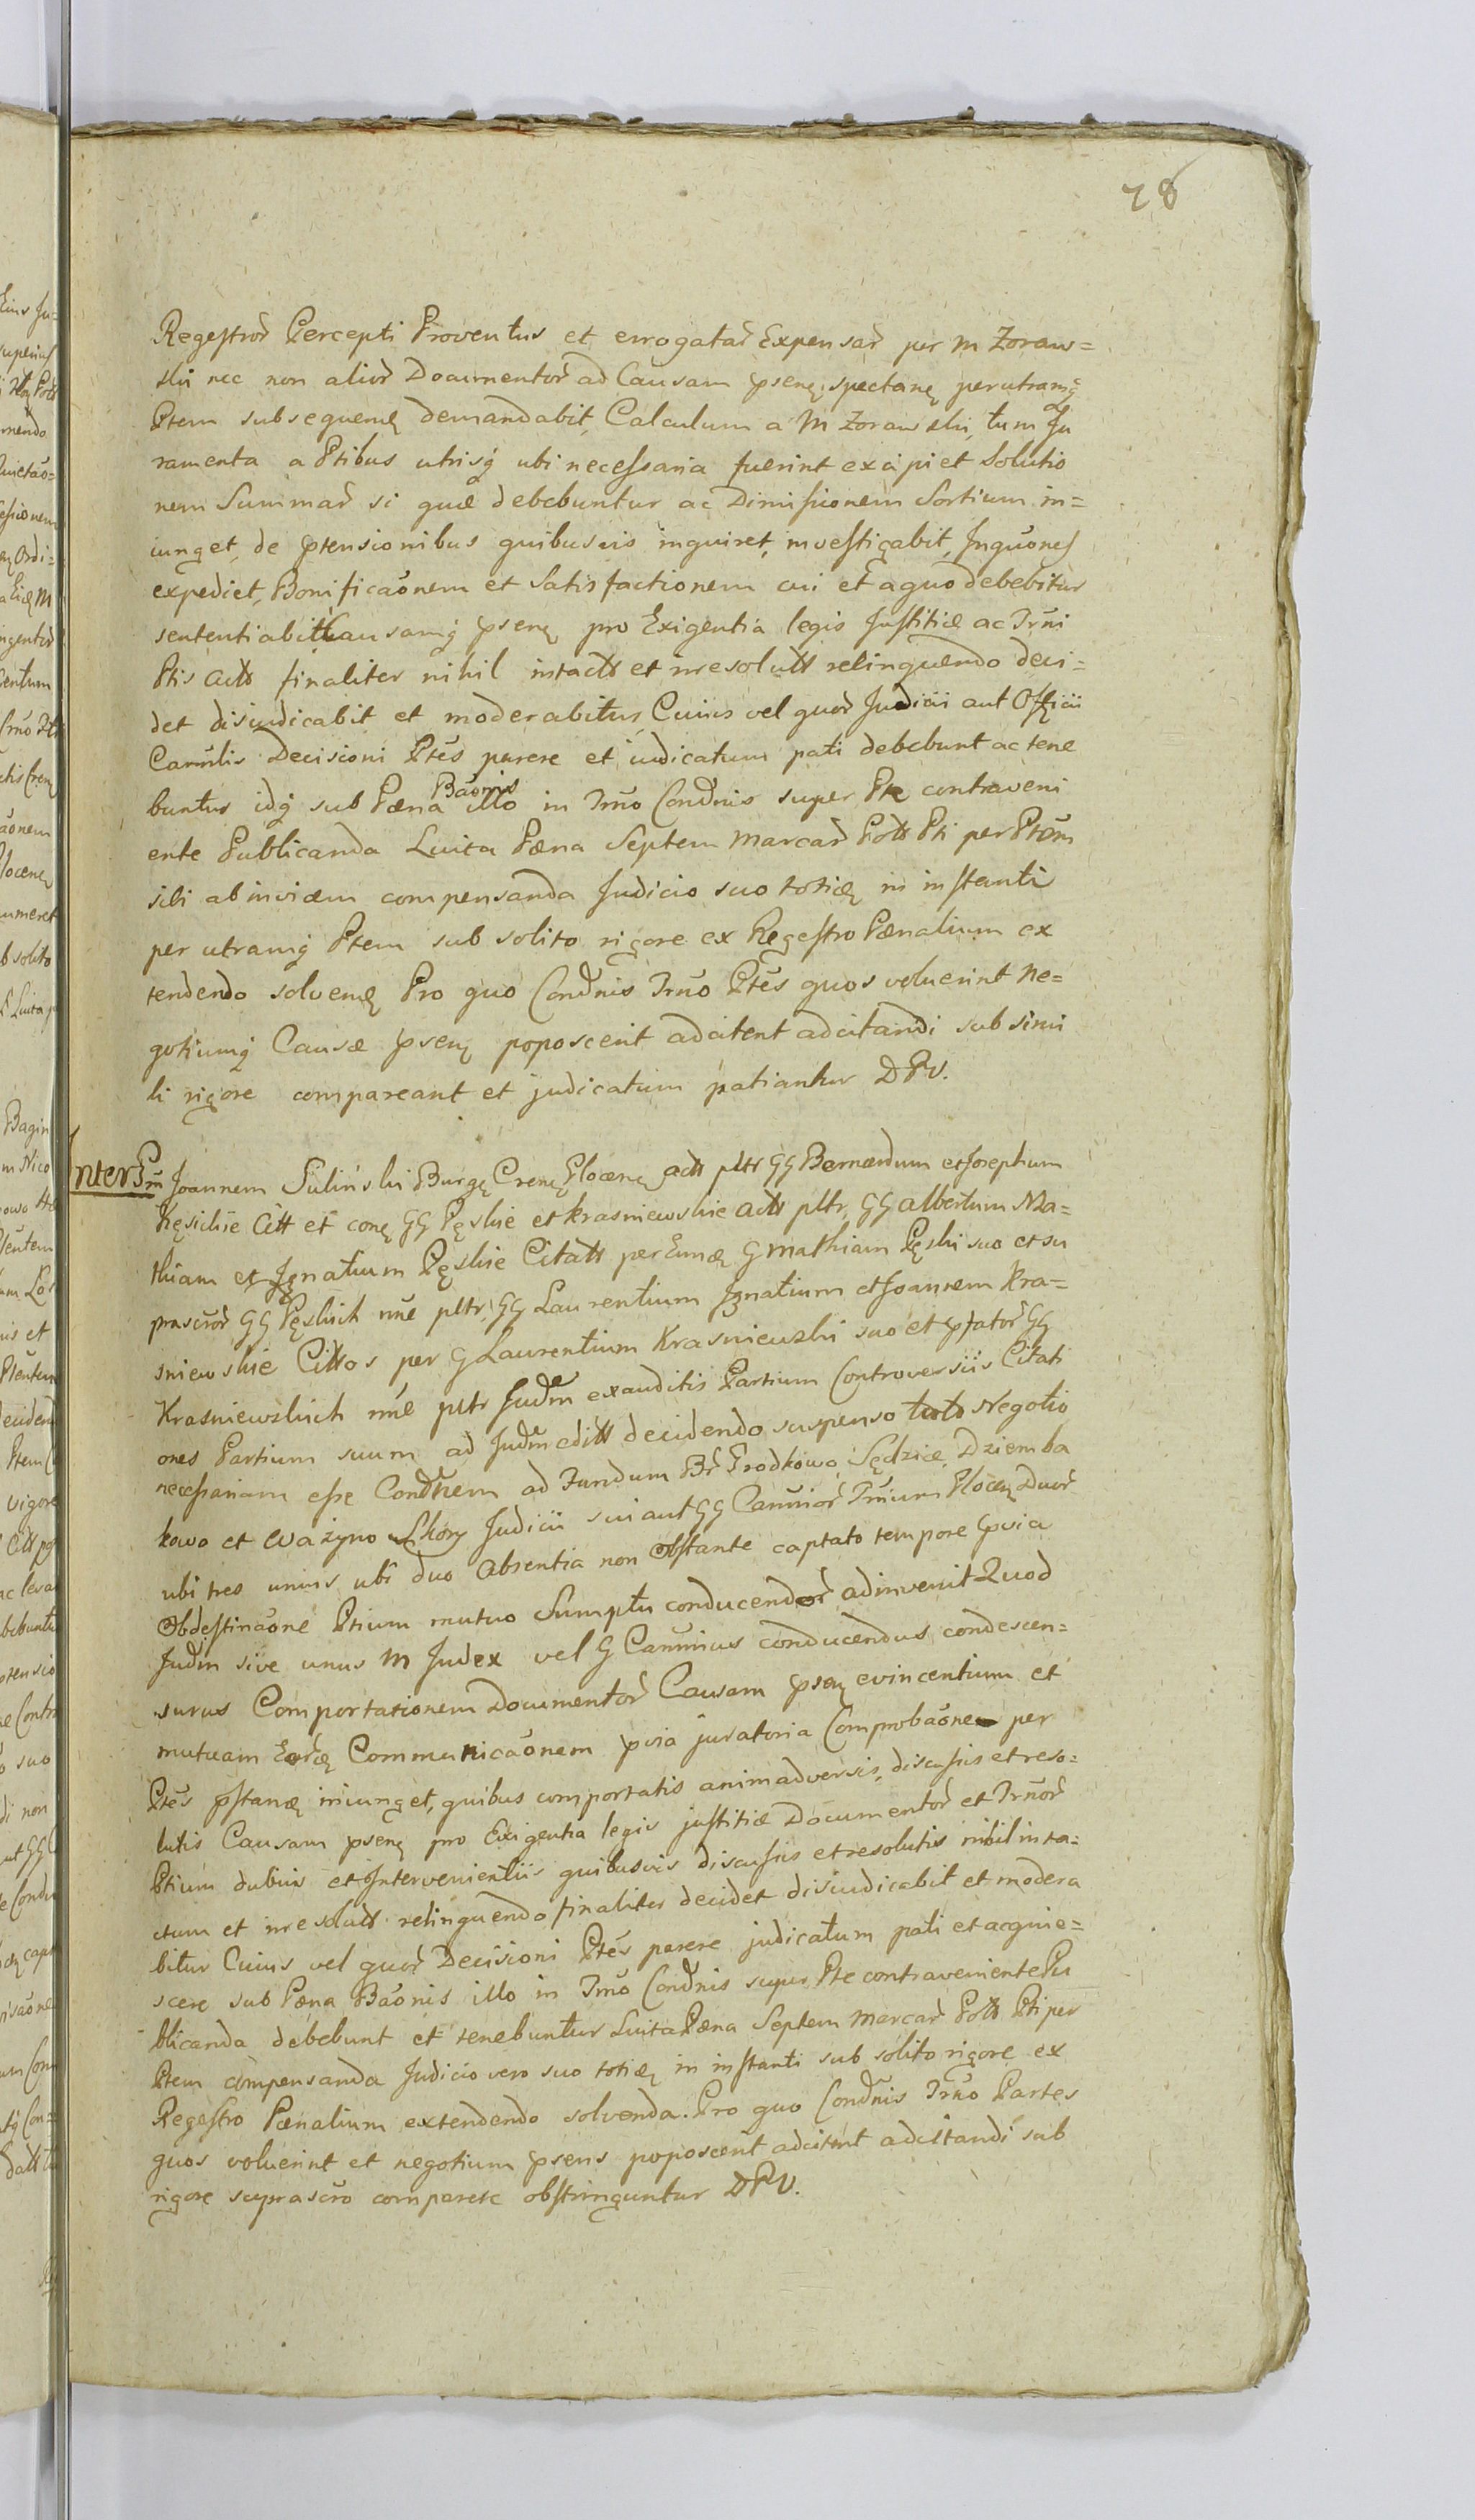 78
Regestror Percepti Proventus et errogatar Expensar per M Zoraw=
ski nec non alior Documentor ad Causam psenę spectanę per utramq
Ptem subsequenę demandabit, Calculum a M Zorawski, tum Ju
ramenta a Ptibus utrisq ubi necessaria fuerint excipiet Solutio
nem Summar si quæ debebuntur ac Dimissionem Sortium in=
iunget, de ptensionibus quibusvis inquiret, investigabit, Inquões
expediet, Bonificaõnem et Satisfactionem cui et a quo debebitur
sententiabit Causamq psenę pro Exigentia legis Justitiæ ac Trni
Ptis Actt finaliter nihil intactt et irresolutt relinquendo deci=
det disiudicabit et moderabitur, Cuius vel quor Judicii aut Officii
Camrlis Decisioni Ptes parere et iudicatum pati debebunt ac tene
buntur idq sub Pæna Baõnis illo in Trno Condnis super Pte contraveni
ente Publicanda Luita Pæna Septem Marcar Potts Pti per Ptem
sibi ab invicem compensanda Judicio suo totię in instanti
per utramq Ptem sub solito rigore ex Regestro Pænalium ex
tendendo solvenę Pro quo Condnis Trno Ptes quos voluerint ne=
gotiumq Causæ psenę poposcerit adcitent adcitandi sub simi
li rigore compareant et judicatum patiantur DPV.
Inter Pm Joannem Sulinski Burgę Crenę Plocenę Actt pltr GG Bernardum et Josephum
Kęsickie Citt et conę GG Pęskie et Krasniewskie Actt pltr, GG Albertum Ma=
thiam et Ignatium Pęskie Citatt per Eundę G Mathiam Pęski suo et su
prascror GG Pęskich nne pltr, GG Laurentium Ignatium et Joannem Kra=
sniewskie Cittos per G Laurentium Krasniewski suo et pfator GG
Krasniewskich nne pltr Judm exauditis Partium Controversiis Citati
ones Partium suum ad Judm editt decidendo suspenso toto Negotio
necessariam esse Condnem ad Fundum Br Grodkowo, Sędzice, Dziemba
kowo et Ważyno Skory Judicii sui aut GG Camrior Trnium Plocenę Duor
ubi tres unius ubi duo Absentia non obstante captato tempore pvia
Obdestinaõne Ptium mutuo Sumptu conducendor adinvenit Quod
Judm sive unus M Judex vel G Camrius conducendus condescen=
surus Comportationem Documentor Causam psenę evincentium et
mutuam Eordę Communicaõnem pvia juratoria Comprobaõne per
Ptes pstanę iniunget, quibus comportatis animadversis, discussis et reso=
lutis Causam psenę pro Exigentia legis justitiæ Documentor et Trnor
Ptium dubiis et Intervenientiis quibusvis discussis et resolutis nihil inta=
ctum et irresolutt relinquendo finaliter decidet disiudicabit et modera
bitur Cuius vel quor Decisioni Ptes parere judicatum pati et acquie=
scere sub Pæna Baõnis illo in Trno Condnis super Pte contraveniente Pu
blicanda debebunt et tenebuntur Luita Pæna Septem Marcar Potts Pti per
Ptem compensanda Judicio vero suo totię in instanti sub solito rigore ex
Regestro Pænalium extendendo solvenda. Pro quo Condnis Trno Partes
quos voluerint et negotium psens poposcerit adcitent adcitandi sub
rigore suprascro comparere obstringuntur DPV.